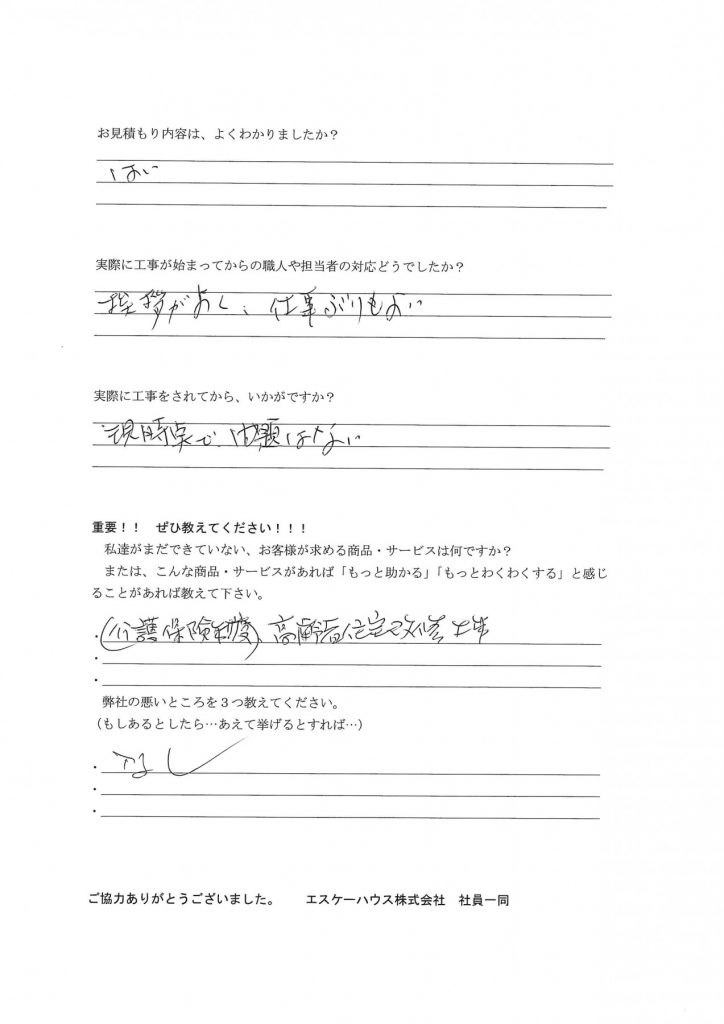 お見積もり内容は、よくわかりましたか？
はい
実際に工事が始まってからの職人や担当者の対応どうでしたか？
挨拶がよく、仕事ぶりもよい
実際に工事をされてから、いかがですか？
現時点で問題はない
重要！！　ぜひ教えてください！！！
私達がまだできていない、お客様が求める商品・サービスは何ですか？
または、こんな商品・サービスがあれば「もっと助かる」「もっとわくわくする」と感じ
ることがあれば教えて下さい。
・(介護保険制度)、高齢者住宅改修工事
・
・
弊社の悪いところを３つ教えてください。
（もしあるとしたら…あえて挙げるとすれば…）
・なし
・
・
ご協力ありがとうございました。　　エスケーハウス株式会社　社員一同